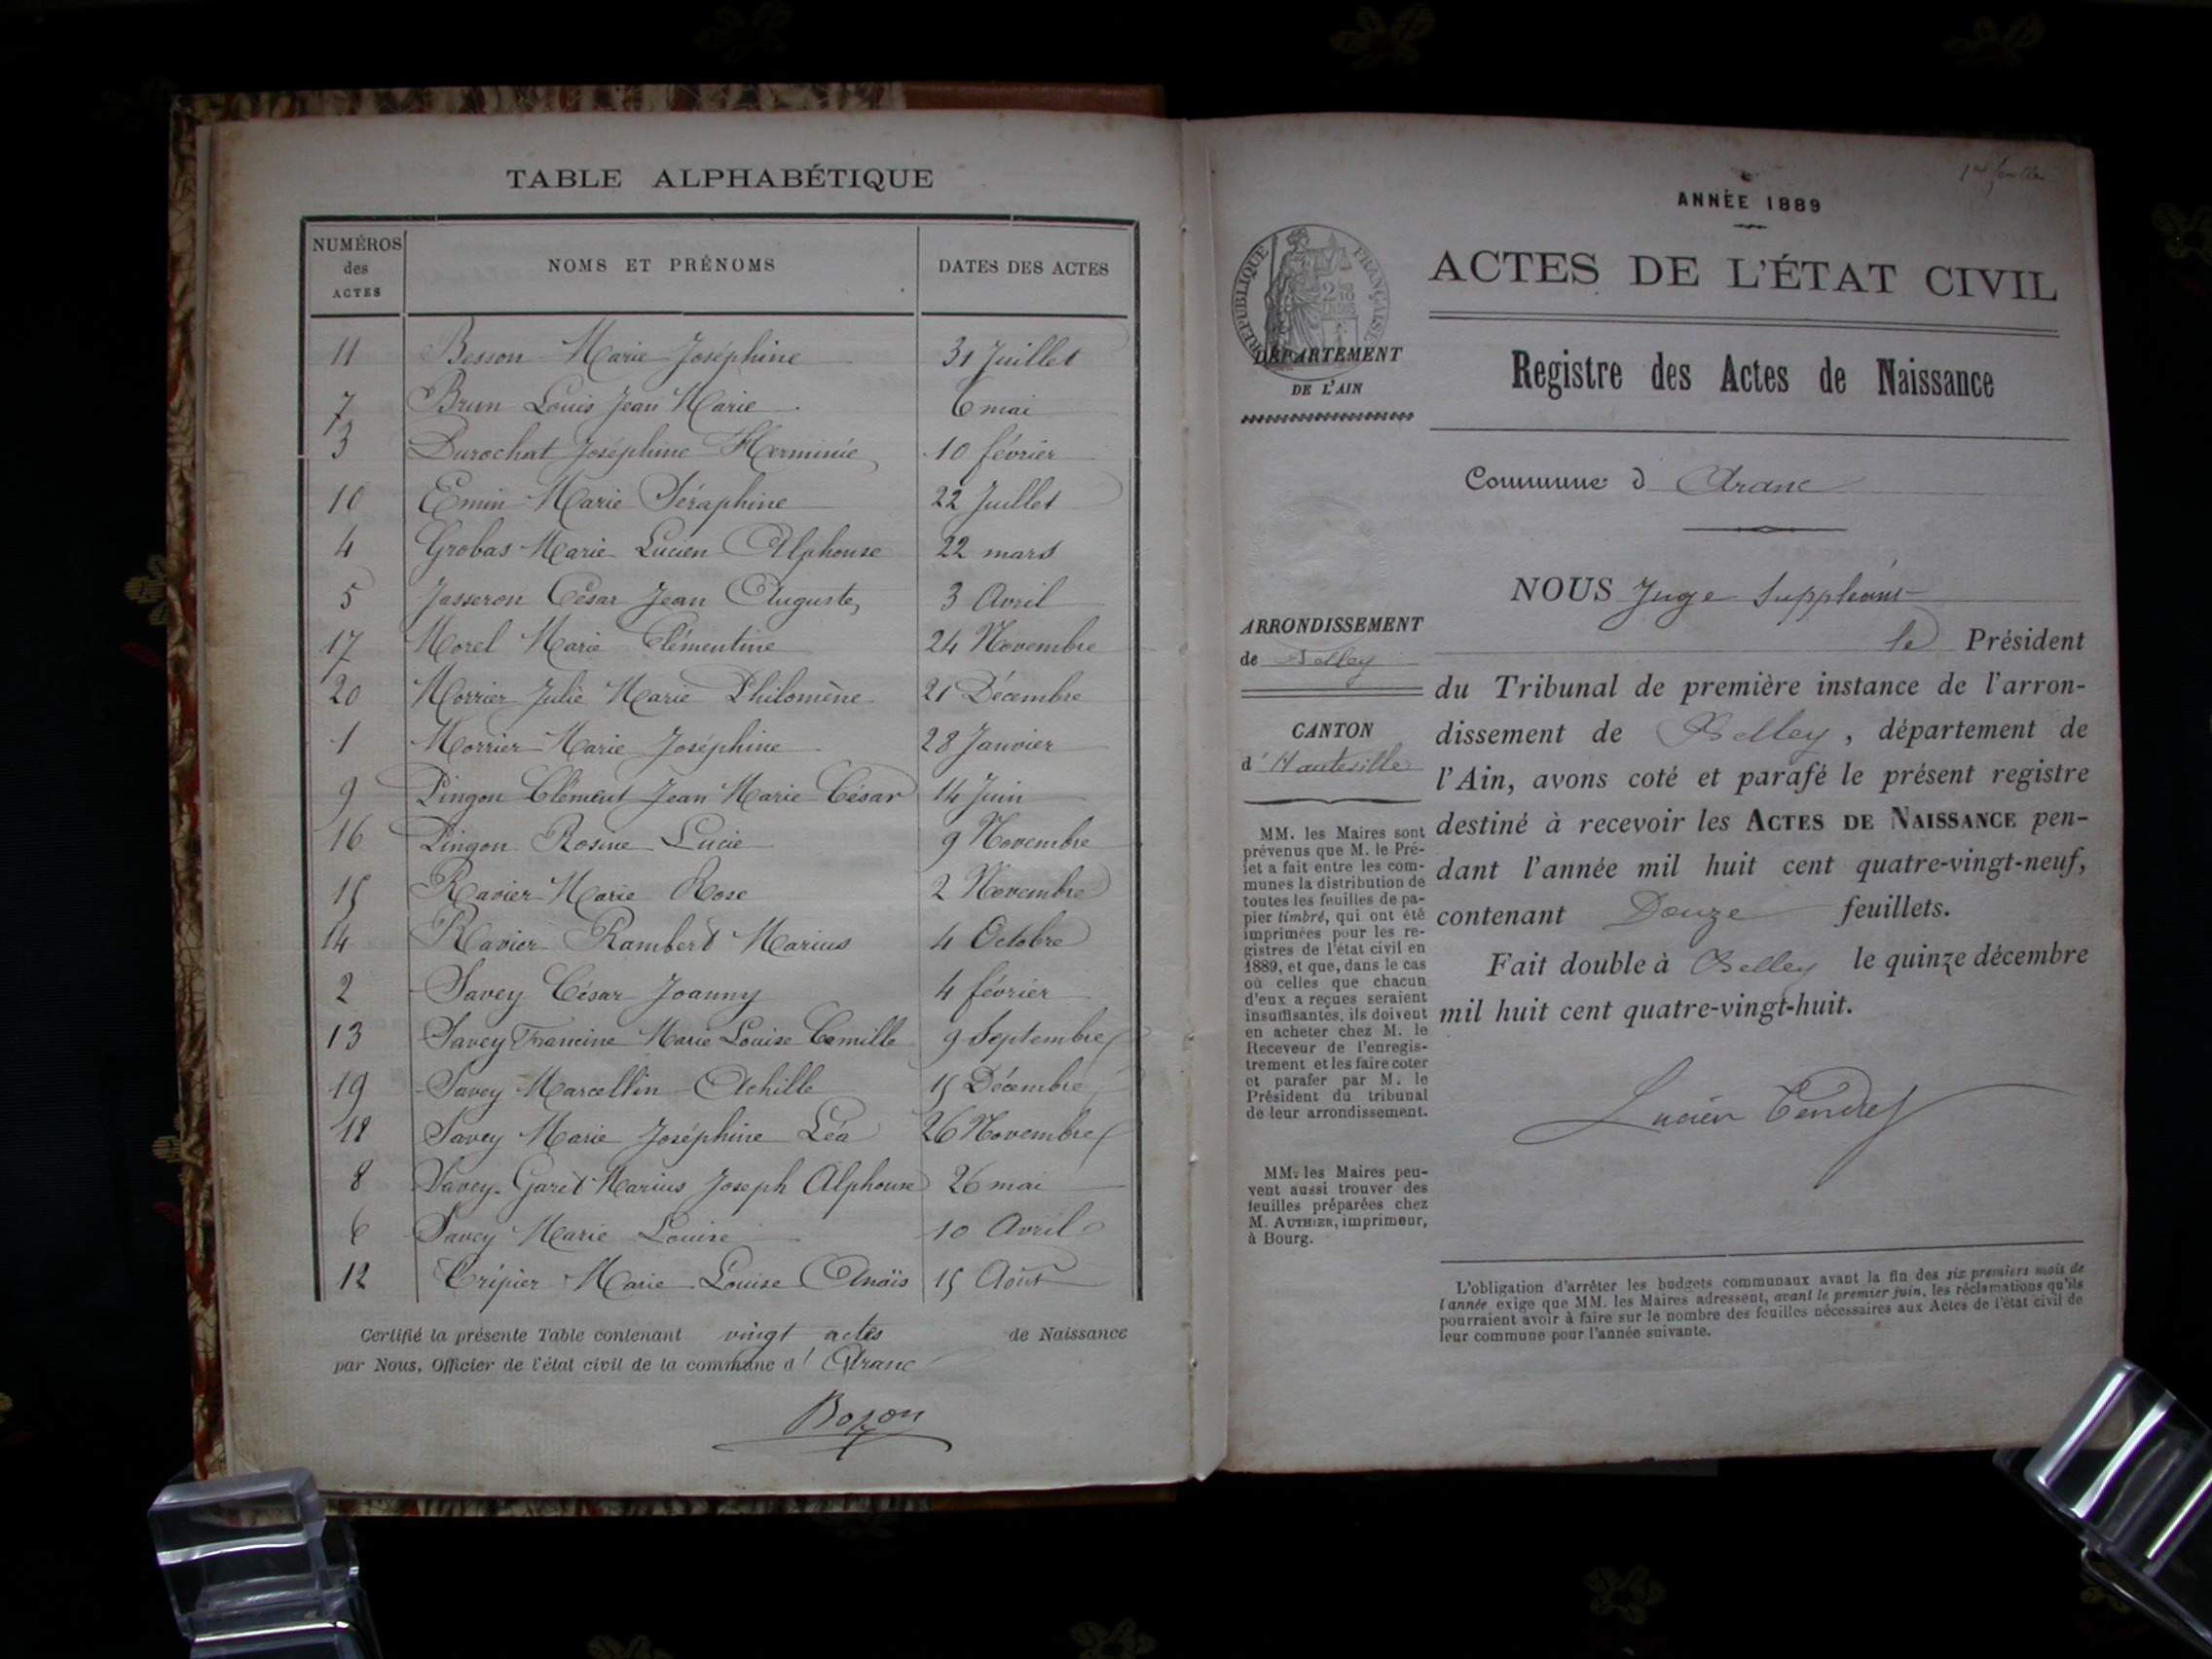 TABLE ALPHABÉTIQUE
NUMÉROS des ACTES NOMS ET PRÉNOMS DATES DES ACTES
11 Besson Marie Joséphine 31 Juillet
7 Brun Louis Jean Marie 6 mai
3 Durochat Joséphine Herminie 10 février
10 Emin Marie Séraphine 22 Juillet
4 Grobas Marie Lucien Alphonse 22 mars
5 Jasseron César Jean Auguste 3 Avril
17 Morel Marie Clémentine 24 Novembre
20 Morrier Julie Marie Philomène 21 Décembre
1 Morrier Marie Joséphine 28 Janvier
9 Pingon Clément Jean Marie César 14 Juin
16 Pingon Rosine Lucie 9 Novembre
15 Ravier Marie Rose 2 Novembre
14 Ravier Rambert Marius 4 Octobre
2 Savey César Joanny 4 février
13 Savey Francine Marie Louise Camille 9 Septembre
19 Savey Marcellin Achille 15 Décembre
18 Savey Marie Joséphine Léa 26 Novembre
8 Savey-Garet Marius Joseph Alphonse 26 mai
6 Savey Marie Louise 10 Avril
12 Crépier Marie Louise Anaïs 15 Août
Certifié la présente Table contenant vingt actes de Naissance
par Nous, Officier de l'état civil de la commune d' Aranc
Bozon
1er feuillet
ANNÉE 1889
ACTES DE L'ÉTAT CIVIL
RÉPUBLIQUE FRANÇAISE
DÉPARTEMENT
DE L'AIN
Registre des Actes de Naissance
Commune d Aranc
ARRONDISSEMENT
de Belley
CANTON
d'Hauteville
MM. les Maires sont
prévenus que M. le Pré-
fet a fait entre les com-
munes la distribution de
toutes les feuilles de pa-
pier timbré, qui ont été
imprimées pour les re-
gistres de l'état civil en
1889, et que, dans le cas
où celles que chacun
d'eux a reçues seraient
insuffisantes, ils doivent
en acheter chez M. le
Receveur de l'enregis-
trement et les faire coter
et parafer par M. le
Président du tribunal
de leur arrondissement.
MM. les Maires peu-
vent aussi trouver des
feuilles préparées chez
M. AUTHIER, imprimeur,
à Bourg.
NOUS Juge Suppléant
le Président
du Tribunal de première instance de l'arron-
dissement de Belley, département de
l'Ain, avons coté et parafé le présent registre
destiné à recevoir les ACTES DE NAISSANCE pen-
dant l'année mil huit cent quatre-vingt-neuf,
contenant Douze feuillets.
Fait double à Belley le quinze décembre
mil huit cent quatre-vingt-huit.
Lucien Tendret
L'obligation d'arrêter les budgets communaux avant la fin des six premiers mois de
l'année exige que MM. les Maires adressent, avant le premier juin, les réclamations qu'ils
pourraient avoir à faire sur le nombre des feuilles nécessaires aux Actes de l'état civil de
leur commune pour l'année suivante.